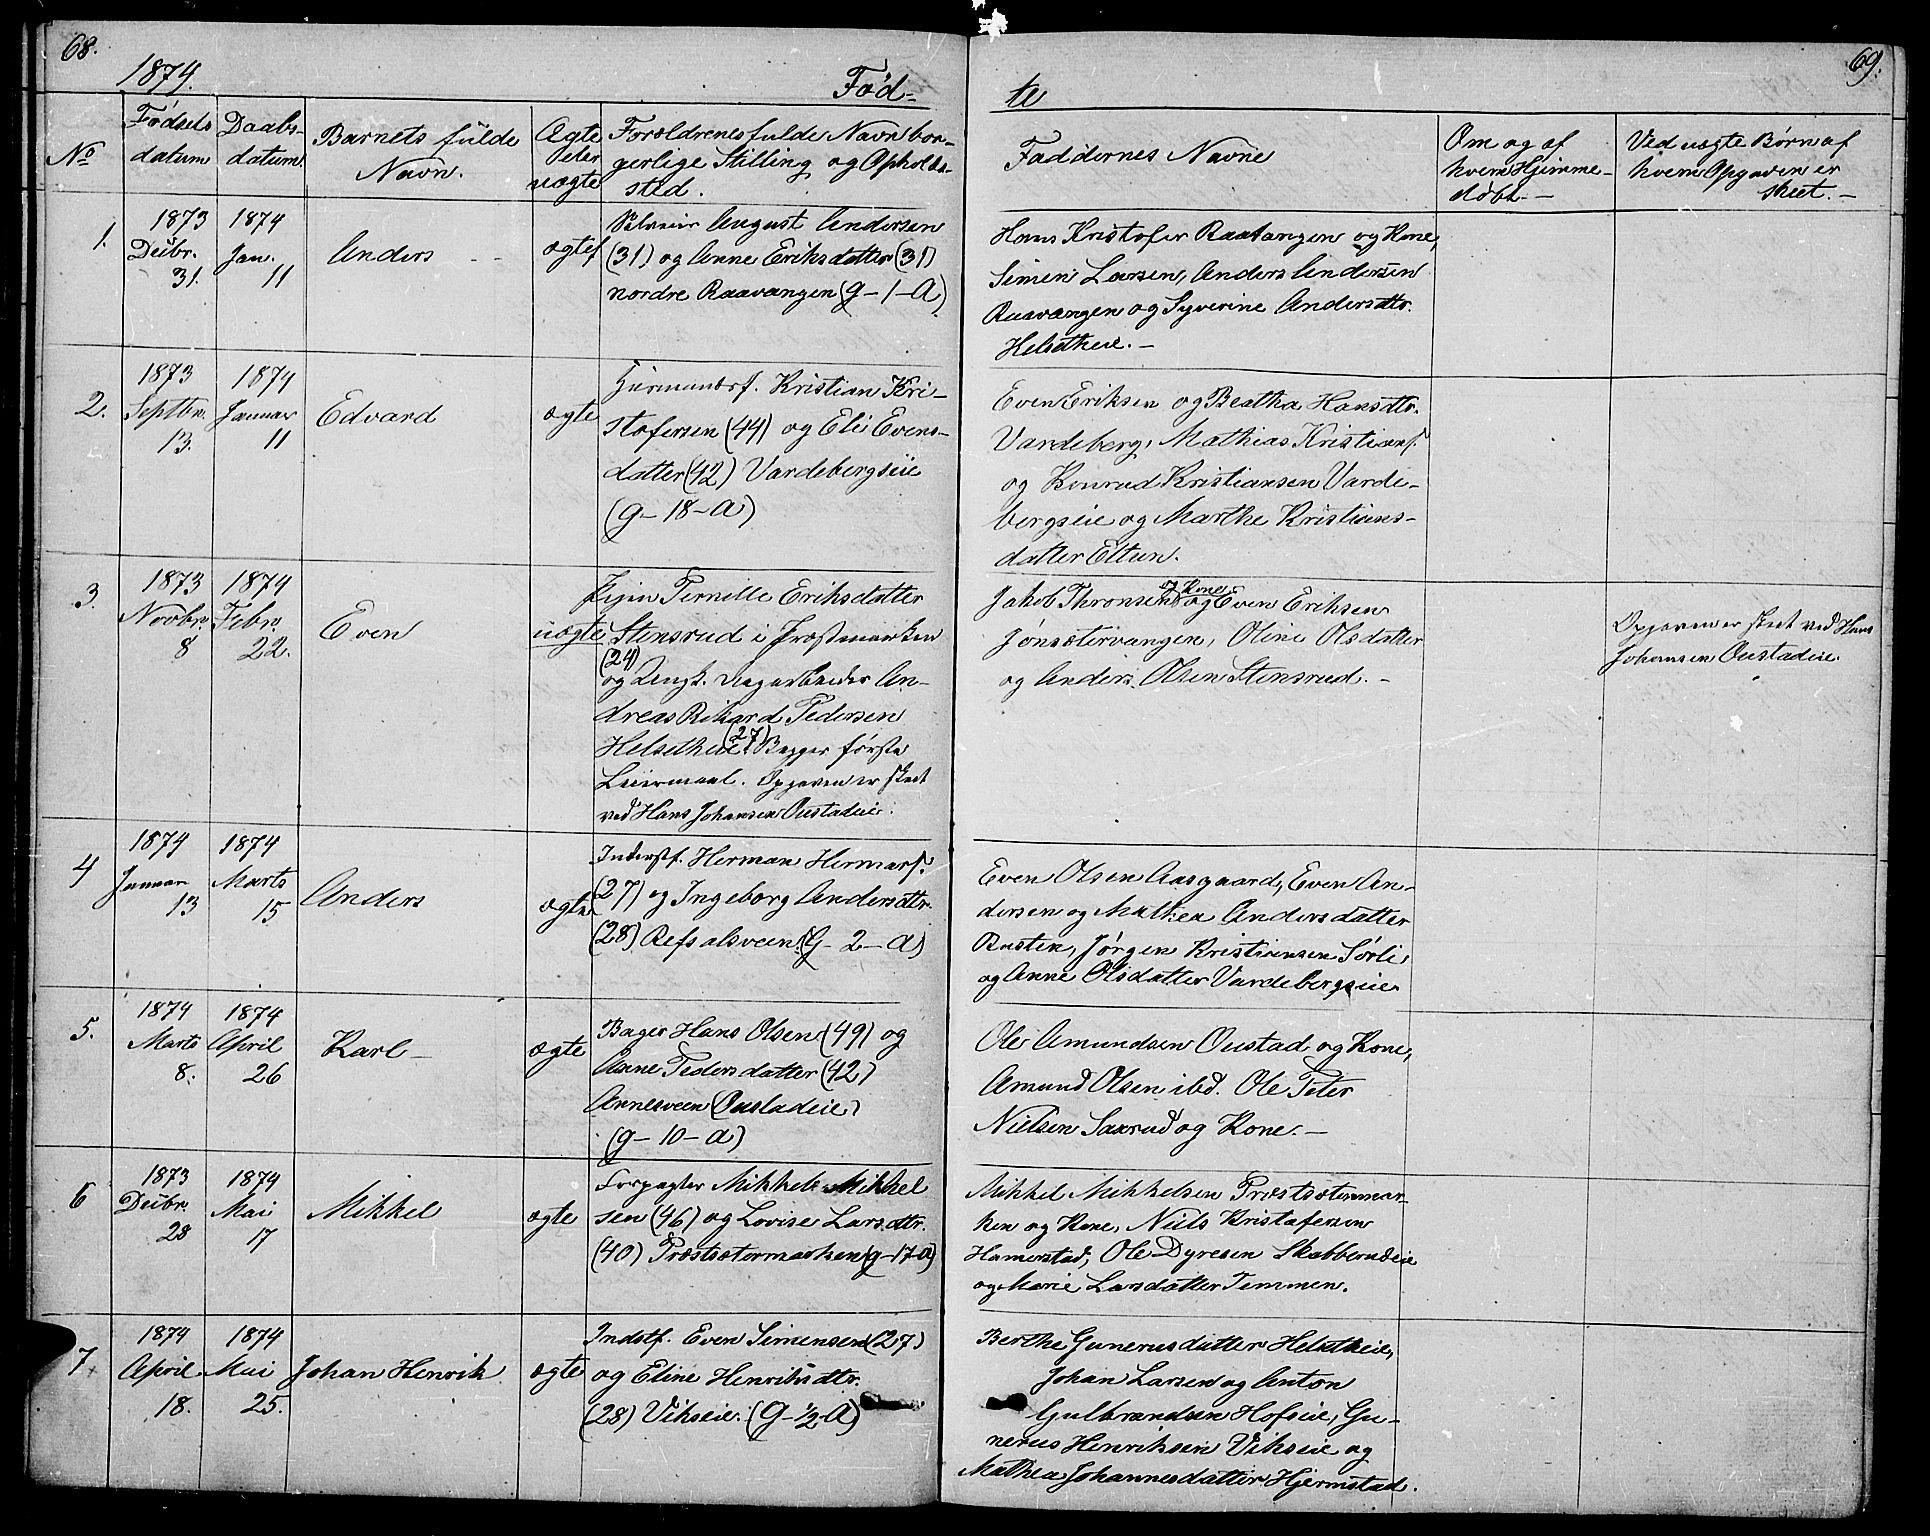 68.
1874.
Fød-
No
Fødsels
datum
Daabs-
datum.
Barnets fulde
Navn.
Ægte
eler
uægte
Forældrenes fulde Navn bor-
gerlige Stilling og Opholds-
sted.
1.
1873
Decbr.
31.
1874
Jan.
11
Anders
ægte
August Andersen
(31) og Anne Eriksdatter (31)
nordre Raavangen (g-1-a)
2.
1873
Septbr.
13.
1874
Januar
11
Edvard
ægte
Huusmandsf. Kristian Kri-
stofersen (44) og Eli Evens-
datter (42) Vardebergseie
(g-18-a)
3.
1873
Novbr.
8
1874
Febr.
22.
Even
uægte
Pigen Pernille Eriksdatter
Stensrud i Frostmarken
(24)
og Ungk. Dagarbeider An-
dreas Rikard Pedersen
Helsetheie (27) Begges første
Leiermaal. Opgaven er skeet
ved Hans Johansen Oustadeie.
4
1874
Januar
13
1874
Marts
15
Anders
ægte
Inderstf. Herman Hermansf.
(27) og Ingeborg Andersdtr.
(28) Refsalsveen (G-2-a)
5.
1874
Marts
8.
1874
April
26
Karl
ægte
Bager Hans Olsen (49) og
Anne Pedersdatter (42)
Annesveen (Oustadeie)
(g-10-a)
6
1873
Decbr.
28
1874
Mai
17
Mikkel
ægte
Forpagter Mikkel Mikkel
sen (46) og Lovise Larsdtr.
(40) Præstsætermarken (g-17-a)
7
1874
April
18.
1874
Mai
25.
Johan Henrik
ægte
Indstf. Even Simensen (27)
og Eline Henriksdtr.
(28) Vikseie. (G-½-a)
69.
te
Faddernes Navne
Om og af
hvem Hjemme-
døbt.-
Ved uægte Børn af
hvem Opgaven er
skeet.-
Hans Kristofer Raavangen og Kone,
Simen Larsen, Anders Andersen
Raavangen og Syverine Andersdtr.
Helsetheie.-
Even Eriksen og Beatha Hansdtr.
Vardeberg, Mathias Kristiansf.
og Konrad Kristiansen Varde-
bergseie og Marthe Kristians-
datter Eltun.
Jakob Thronsen og Kone og Even Eriksen
Jønsætervangen, Oline Olsdatter
og Anders Olsen Stensrud.-
Opgaven er skeet ved Hans
Johansen Oustadeie.
Even Olsen Aasgaard, Even An-
dersen og Mathea Andersdatter
Busten, Jørgen Kristiansen Sørli
og Anne Olsdatter Vardebergseie
Ole Amundsen Oustad og Kone,
Amund Olsen ibd. Ole Peter
Nielsen Saxrud og Kone.-
Mikkel Mikkelsen Præstsætermar-
ken og Kone, Niels Kristofersen
Hamerstad, Ole Dyresen Skabberudeie
og Marie Larsdatter Temmen.
Berthe Gunerusdatter Helsetheie,
Johan Larsen og Anton
Gulbrandsen Hofseie, Gu-
nerus Henriksen Vikseie og
Mathea Johannesdatter Hjermstad.